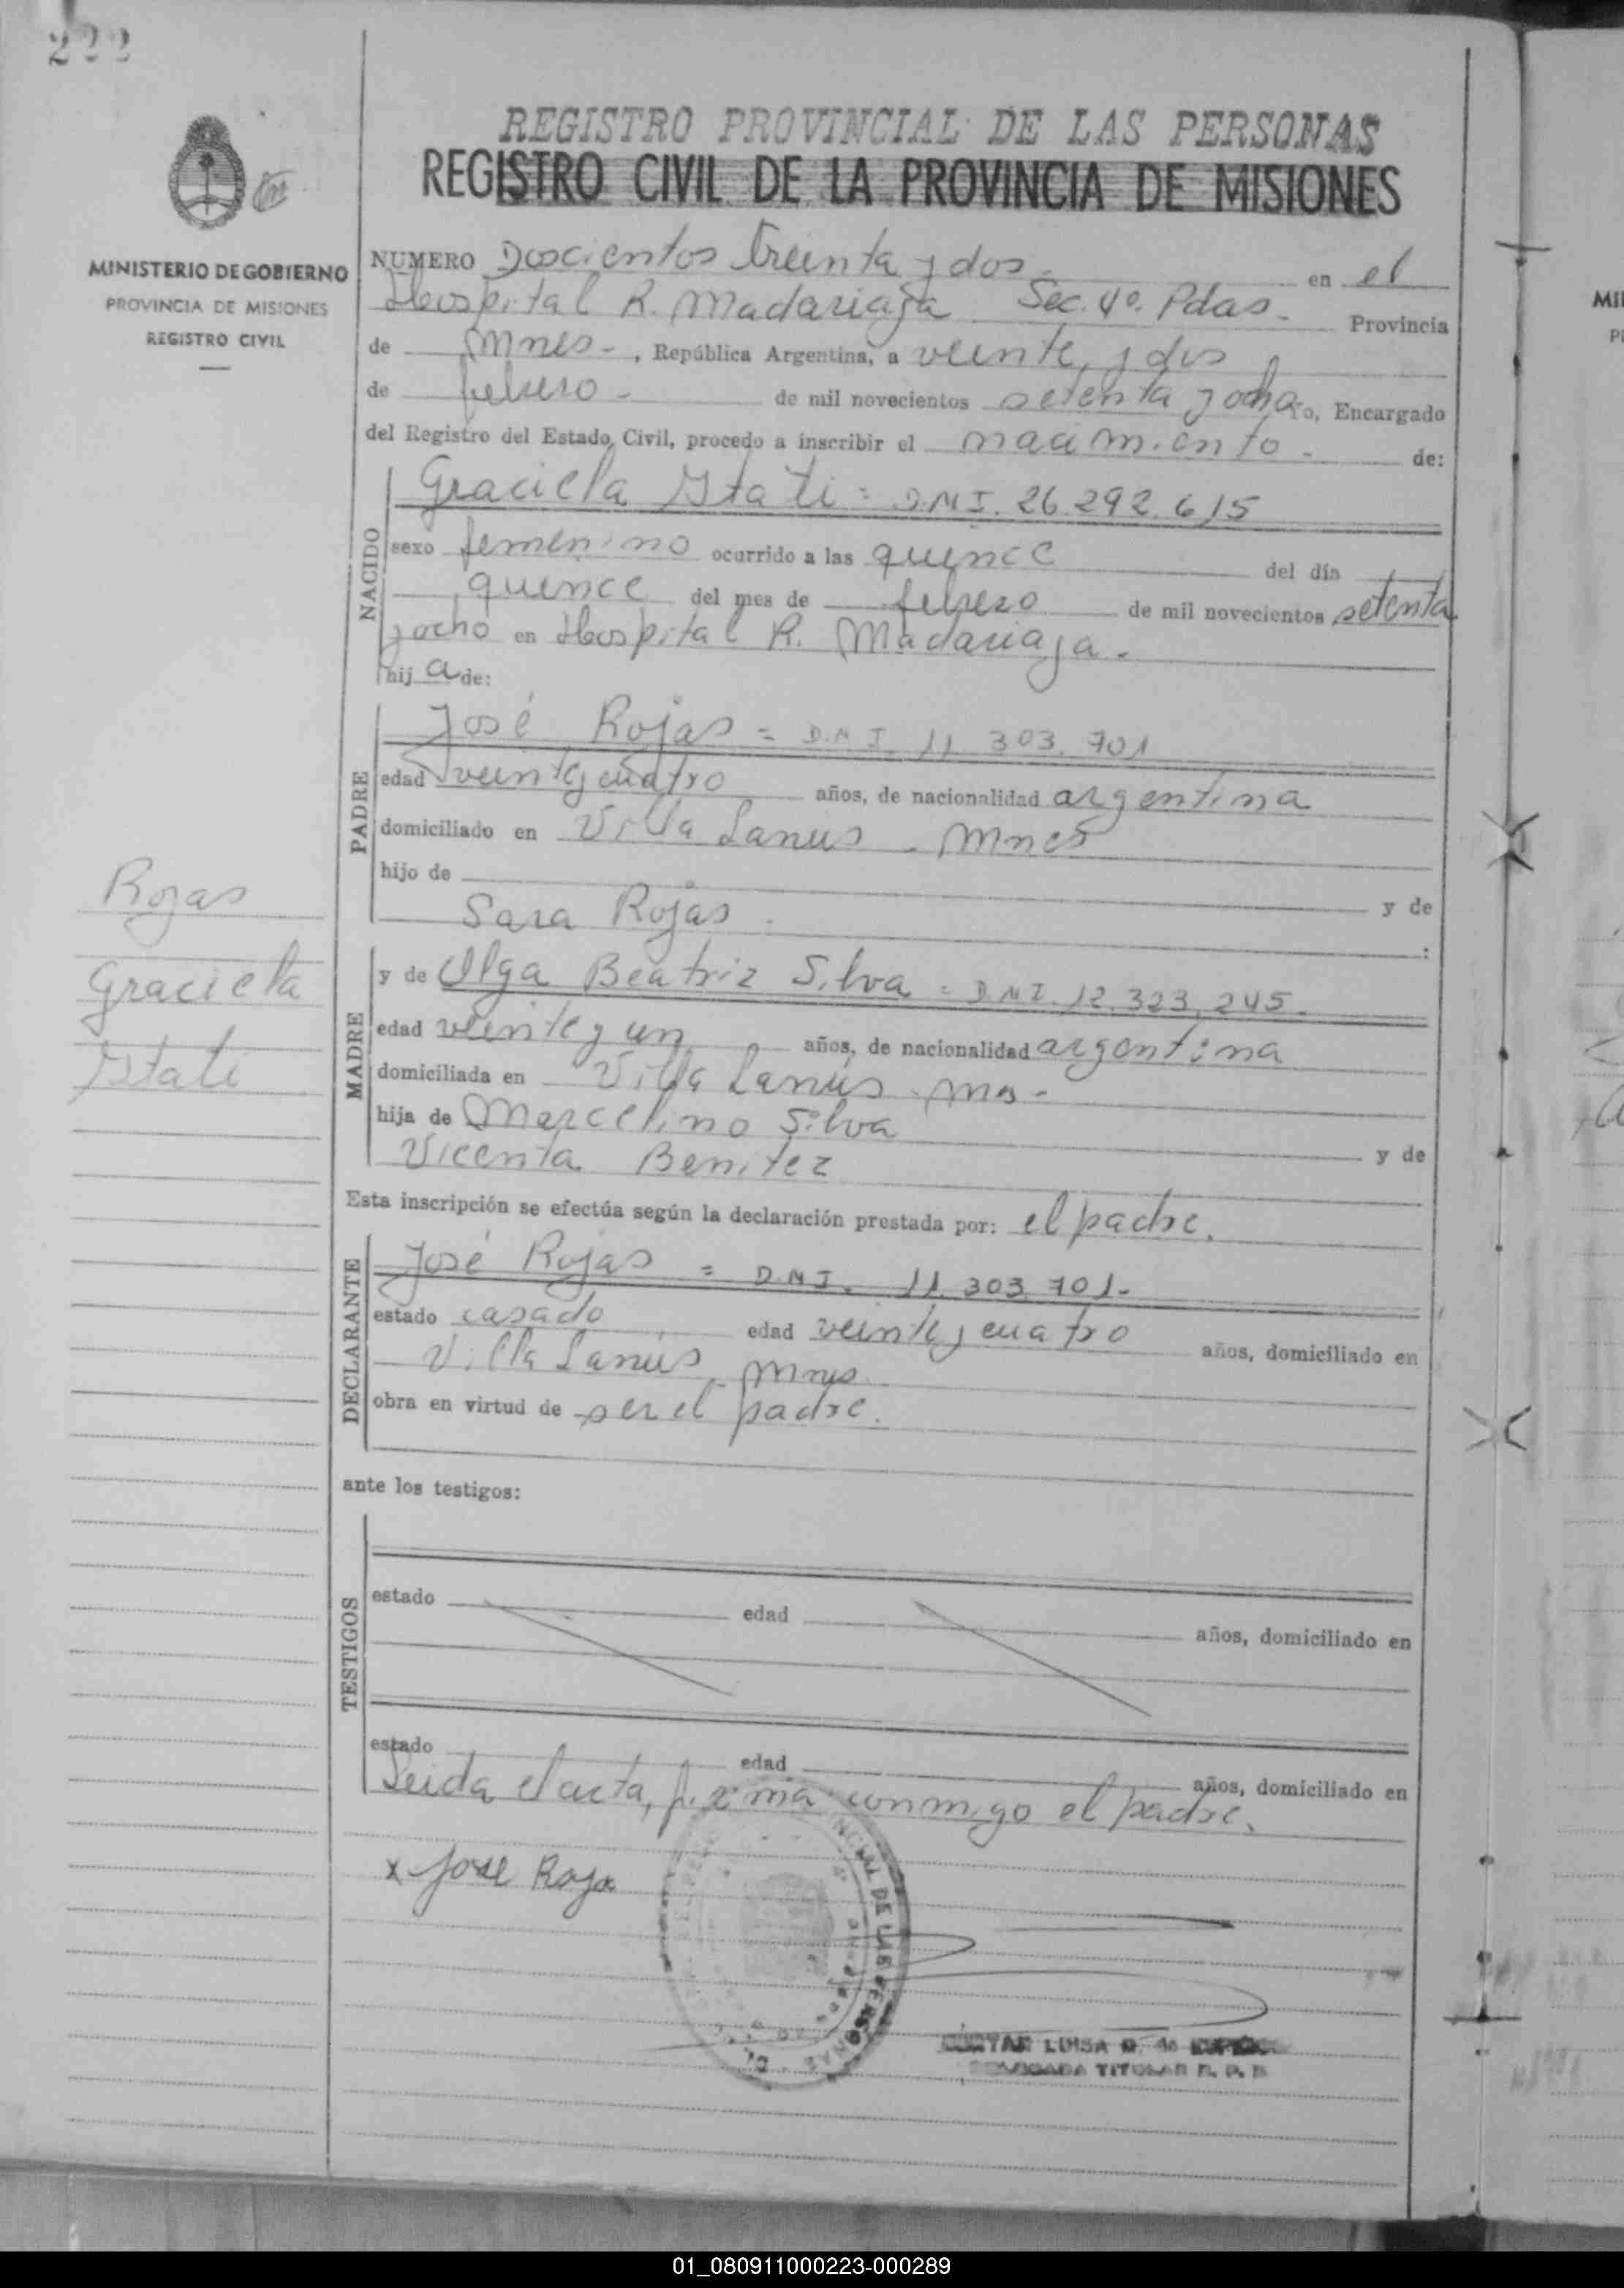 222
REGISTRO PROVINCIAL DE LAS PERSONAS
REGISTRO CIVIL DE LA PROVINCIA DE MISIONES
MINISTERIO DE GOBIERNO
PROVINCIA DE MISIONES
REGISTRO CIVIL
NUMERO Doscientos treinta y dos - en el
Hospital R. Madariaga Sec. 4º. Pdas. Provincia
de Mnes-, República Argentina, a veinte y dos
de febrero - de mil novecientos setenta y ocho Yo, Encargado
del Registro del Estado Civil, procedo a inscribir el nacimiento - de:
NACIDO
Graciela Itati = D.N.I. 26.292.615
sexo femenino ocurrido a las quince del día
quince del mes de febrero de mil novecientos setenta
y ocho en Hospital R. Madariaga -
hij a de:
PADRE
José Rojas = D.N.I. 11 303.701
edad veinte y cuatro años, de nacionalidad argentina
domiciliado en Villa Lanus - Mnes
hijo de y de
Sara Rojas :
Rojas
Graciela
Itati
MADRE
y de Olga Beatriz Silva = D.N.I. 12.323.245.
edad veinte y un años, de nacionalidad argentina
domiciliada en Villa Lanús - Mns -
hija de Marcelino Silva y de
Vicenta Benitez
Esta inscripción se efectúa según la declaración prestada por: el padre.
DECLARANTE
José Rojas = D.N.I. 11.303.701-
estado casado edad veinte y cuatro años, domiciliado en
Villa Lanus, Mnes
obra en virtud de ser el padre.
ante los testigos:
TESTIGOS
estado edad años, domiciliado en
estado edad años, domiciliado en
Leida el acta, firma conmigo el padre.
x Jose Roja
LUISA
TITULAR R. P. P.
01_080911000223-000289